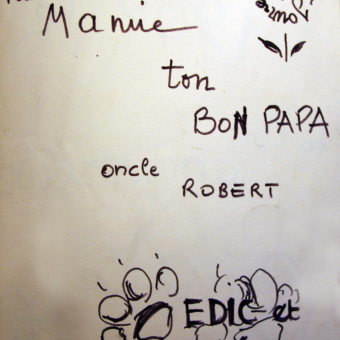 Manue
ton
BON PAPA
oncle
ROBERT
EDIC et